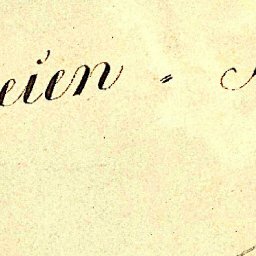 eien =